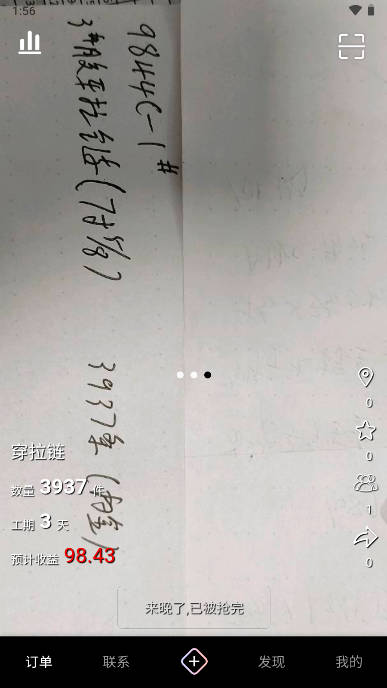 1:56
9844C-1#
3#胶车拉链(7寸5/8)
3937条
穿拉链
数量 3937 件
工期 3 天
预计收益 98.43
0
0
1
0
来晚了,已被抢完
订单
联系
发现
我的